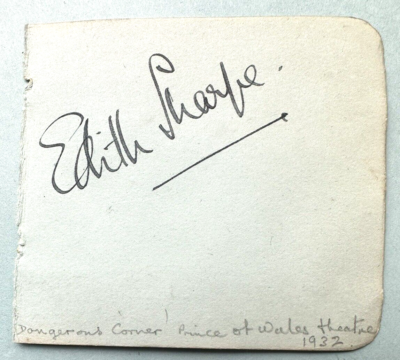 Edith Sharpe.
Dangerous 'Corner' Prince of Wales theatre
1932.